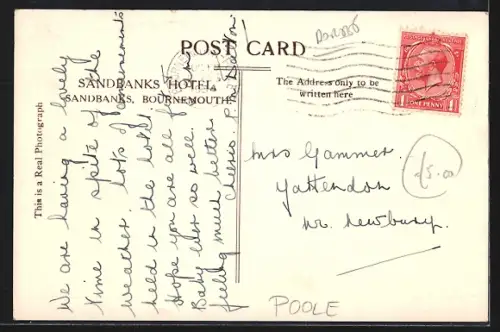 Dorset
POST CARD
SANDBANKS HOTEL,
SANDBANKS, BOURNEMOUTH.
The Address only to be
written here
ONE PENNY
This is a Real Photograph
We are having a lovely
time in spite of the
weather. lots of amusements
held in the hotel
Hope you are all
Baby ever so well.
feeling much better
Cheerio.
Mrs Gammer.
Yattendon
Nr. Newbury.
£5.00
POOLE